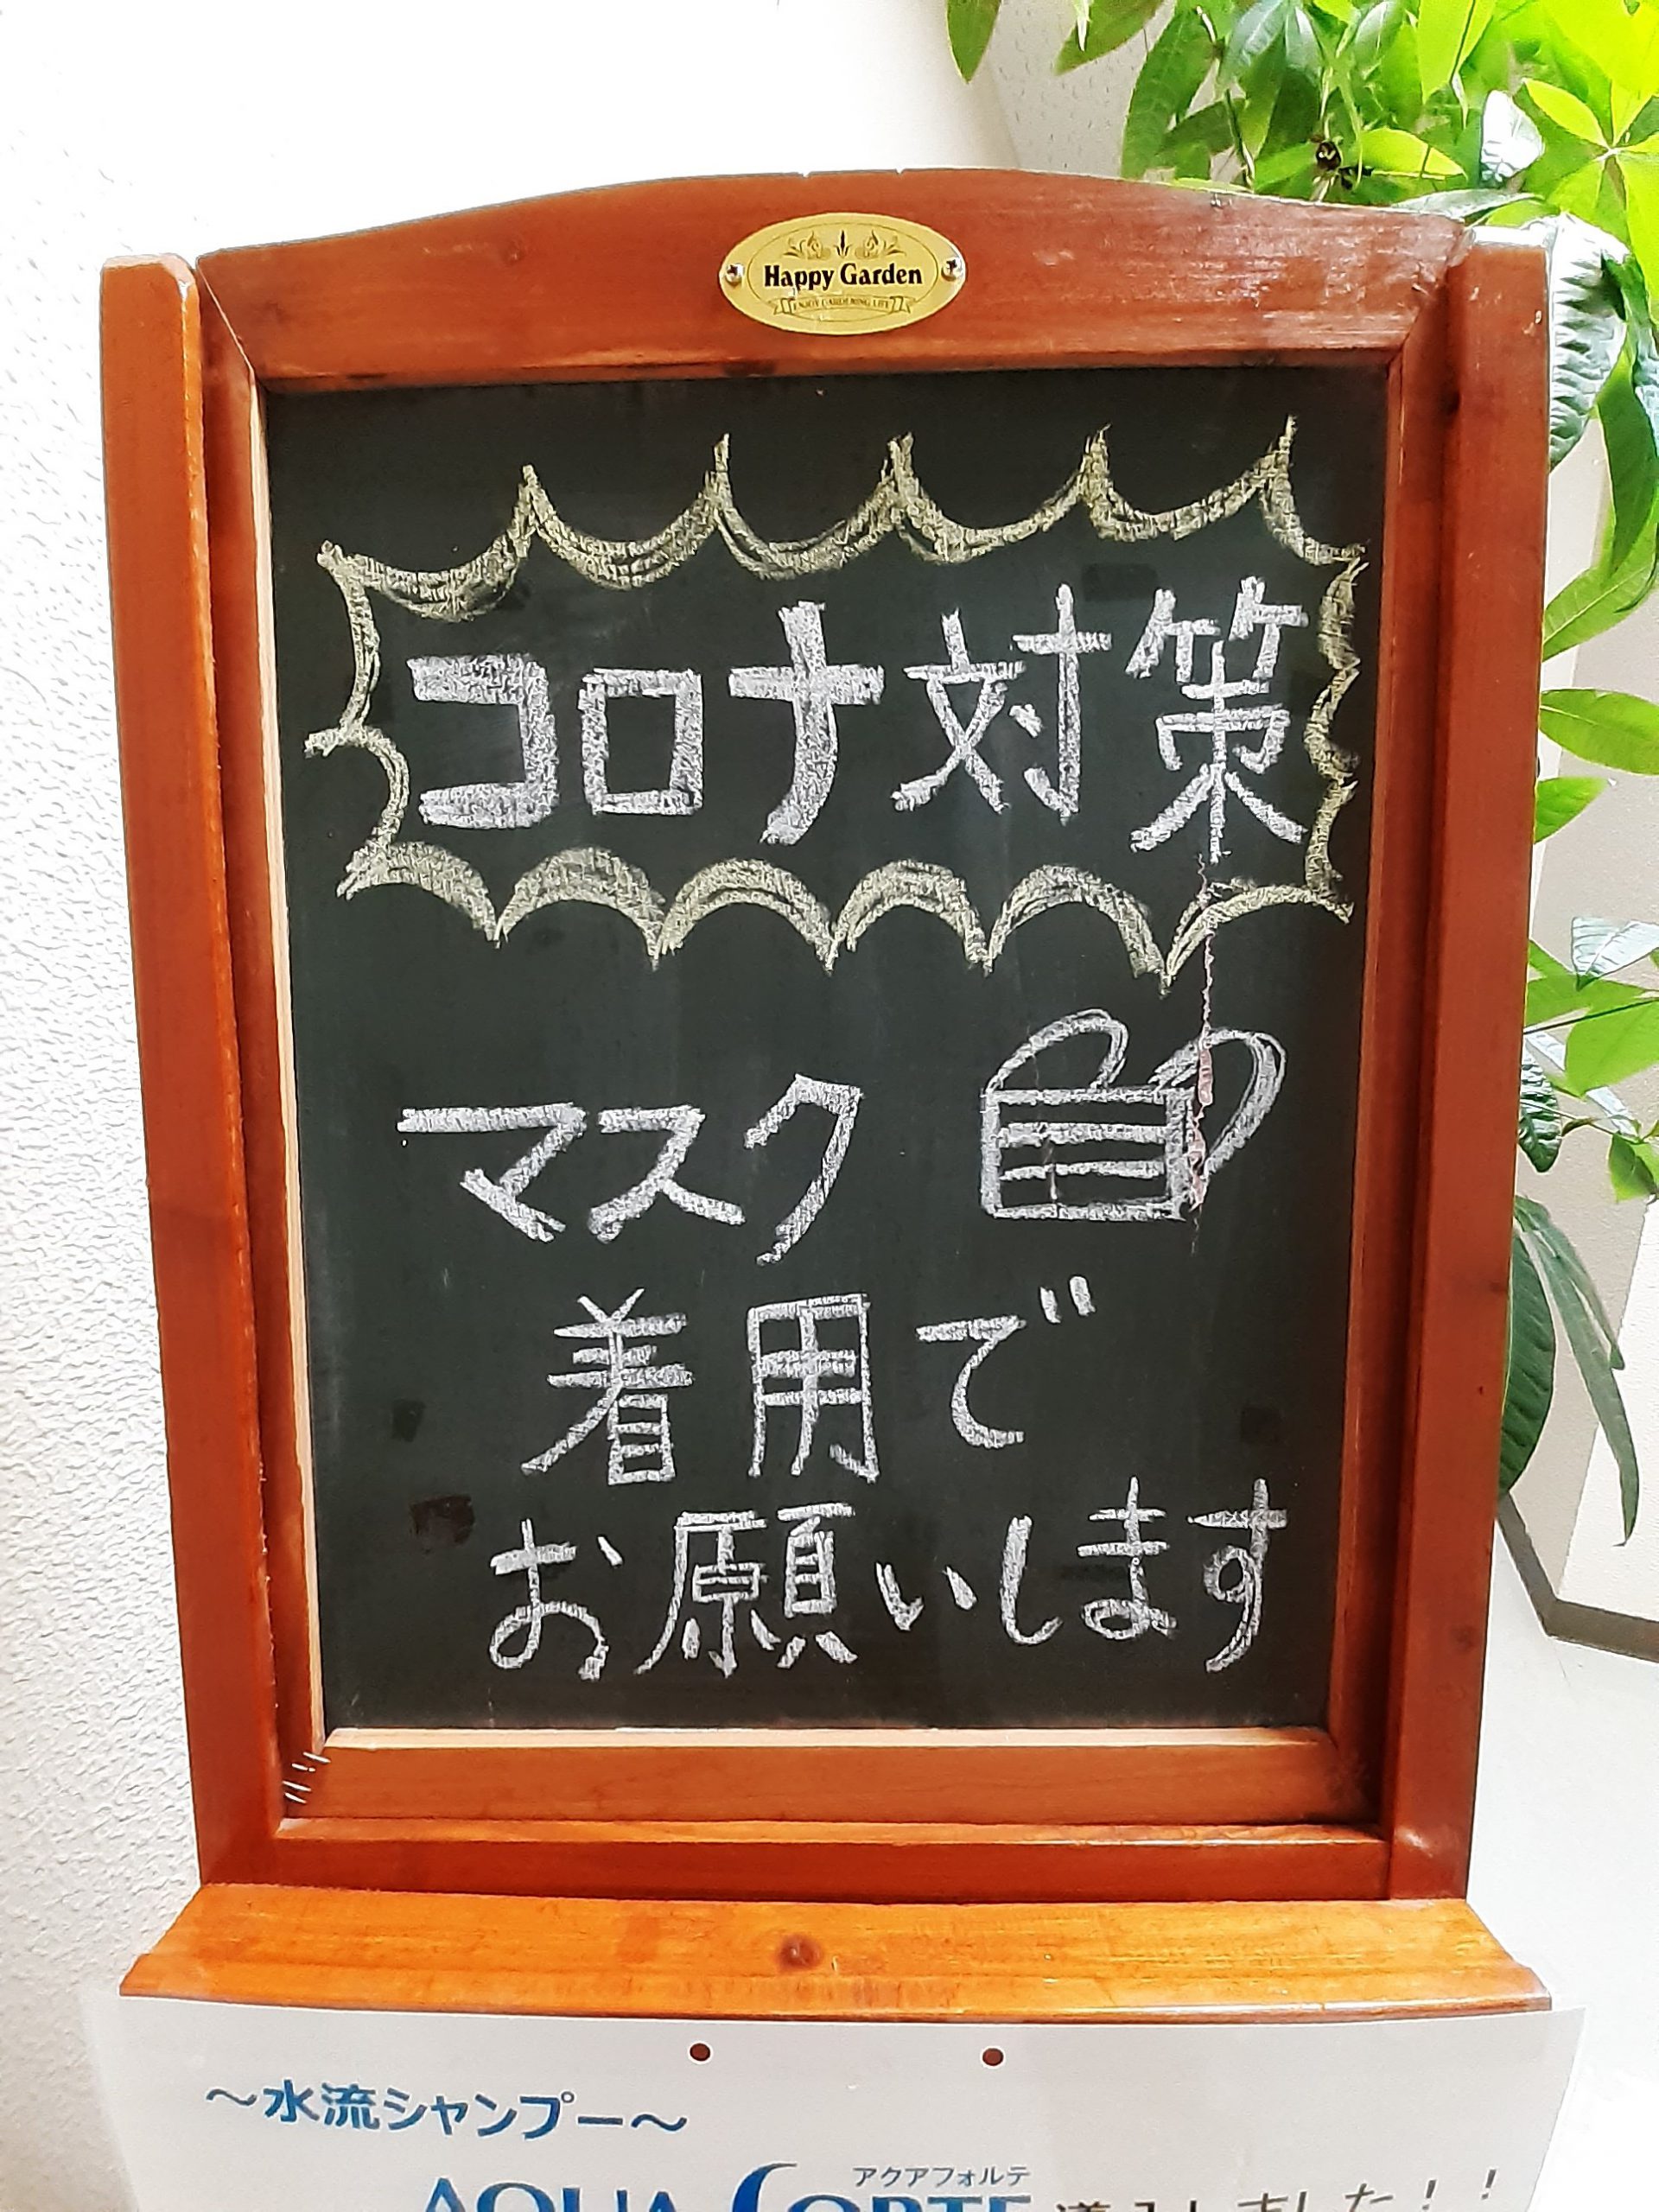 Happy Garden
ENJOY GARDENING LIFE
コロナ対策
マスク
着用で
お願いします
～水流シャンプー～
アクアフォルテ
AQUA FORTE 導入しました！！